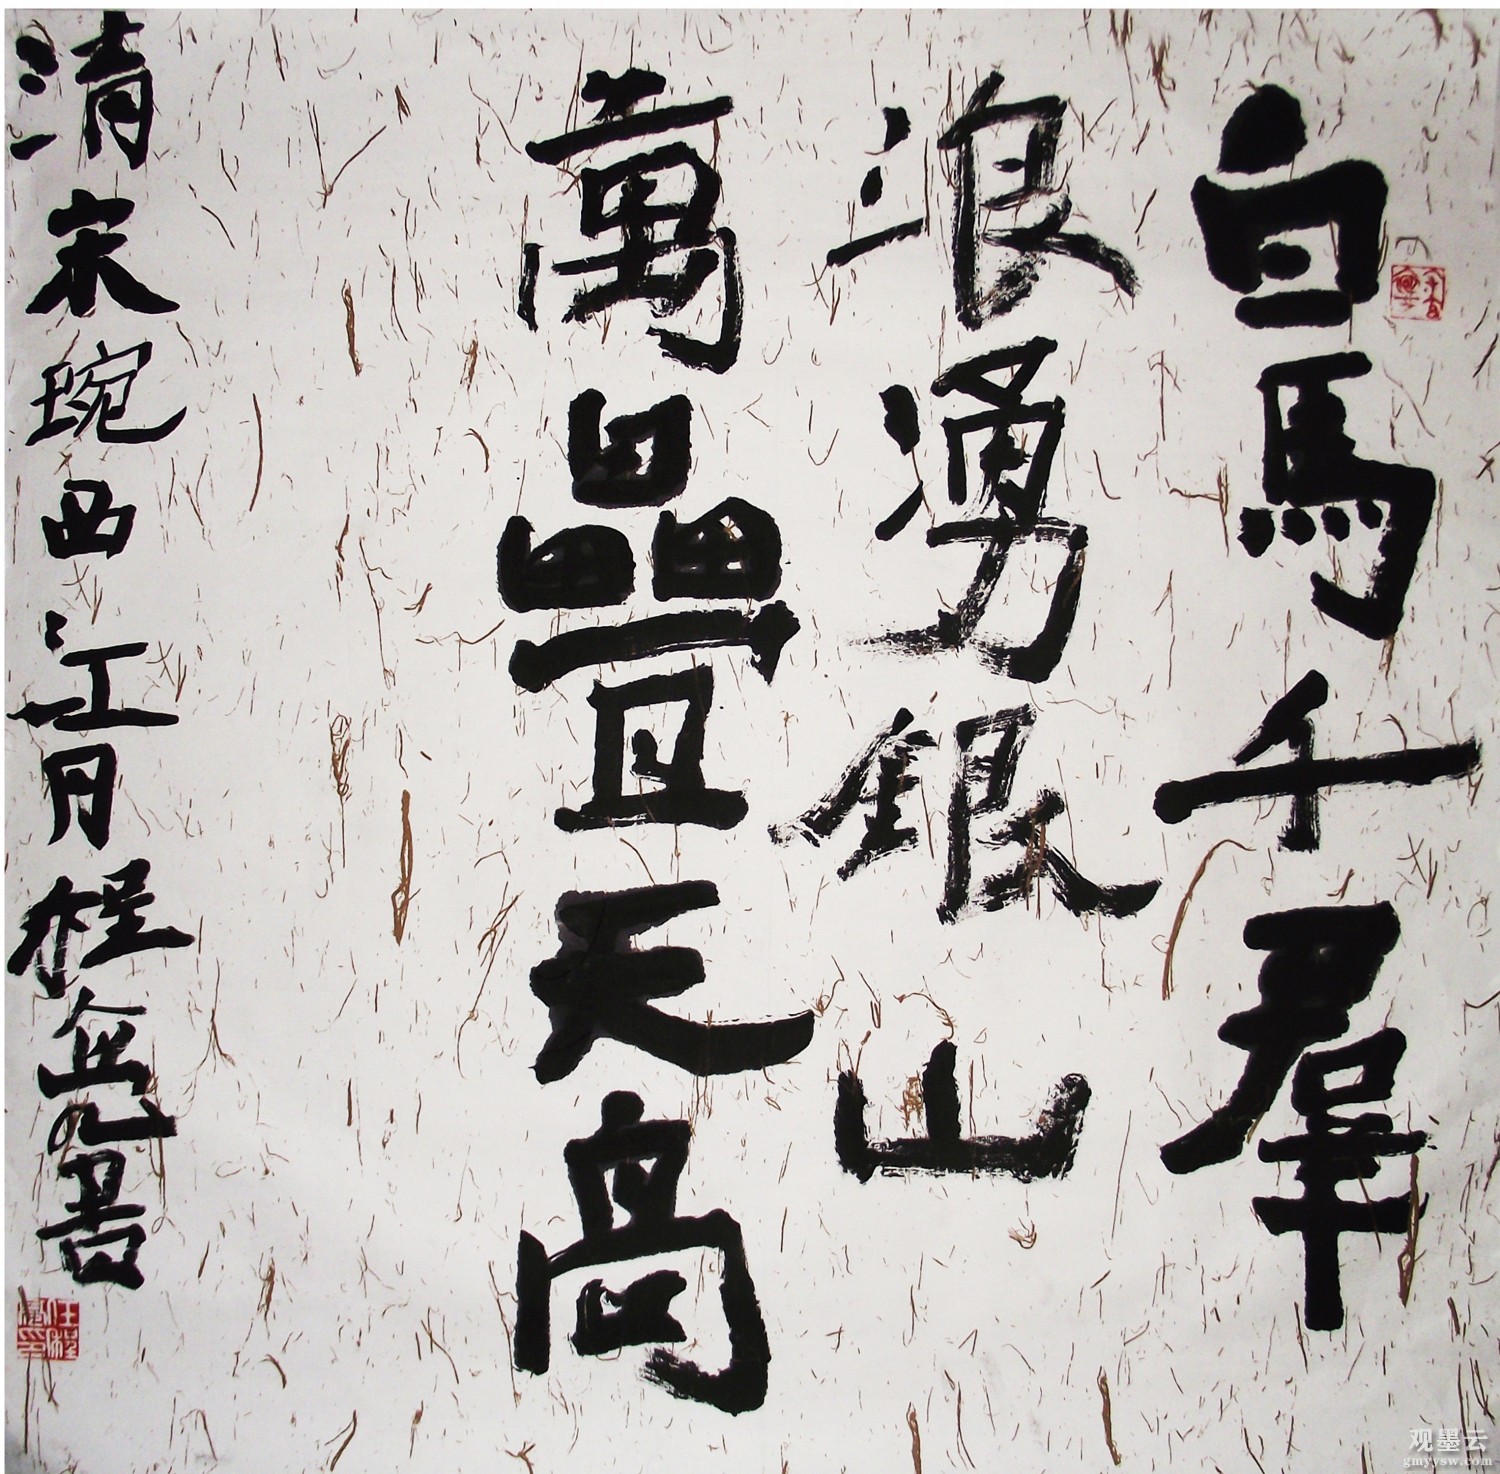 白馬千羣
浪湧銀山
萬疊天高
清宋琬西江月程書
观墨云
gmyysw.com